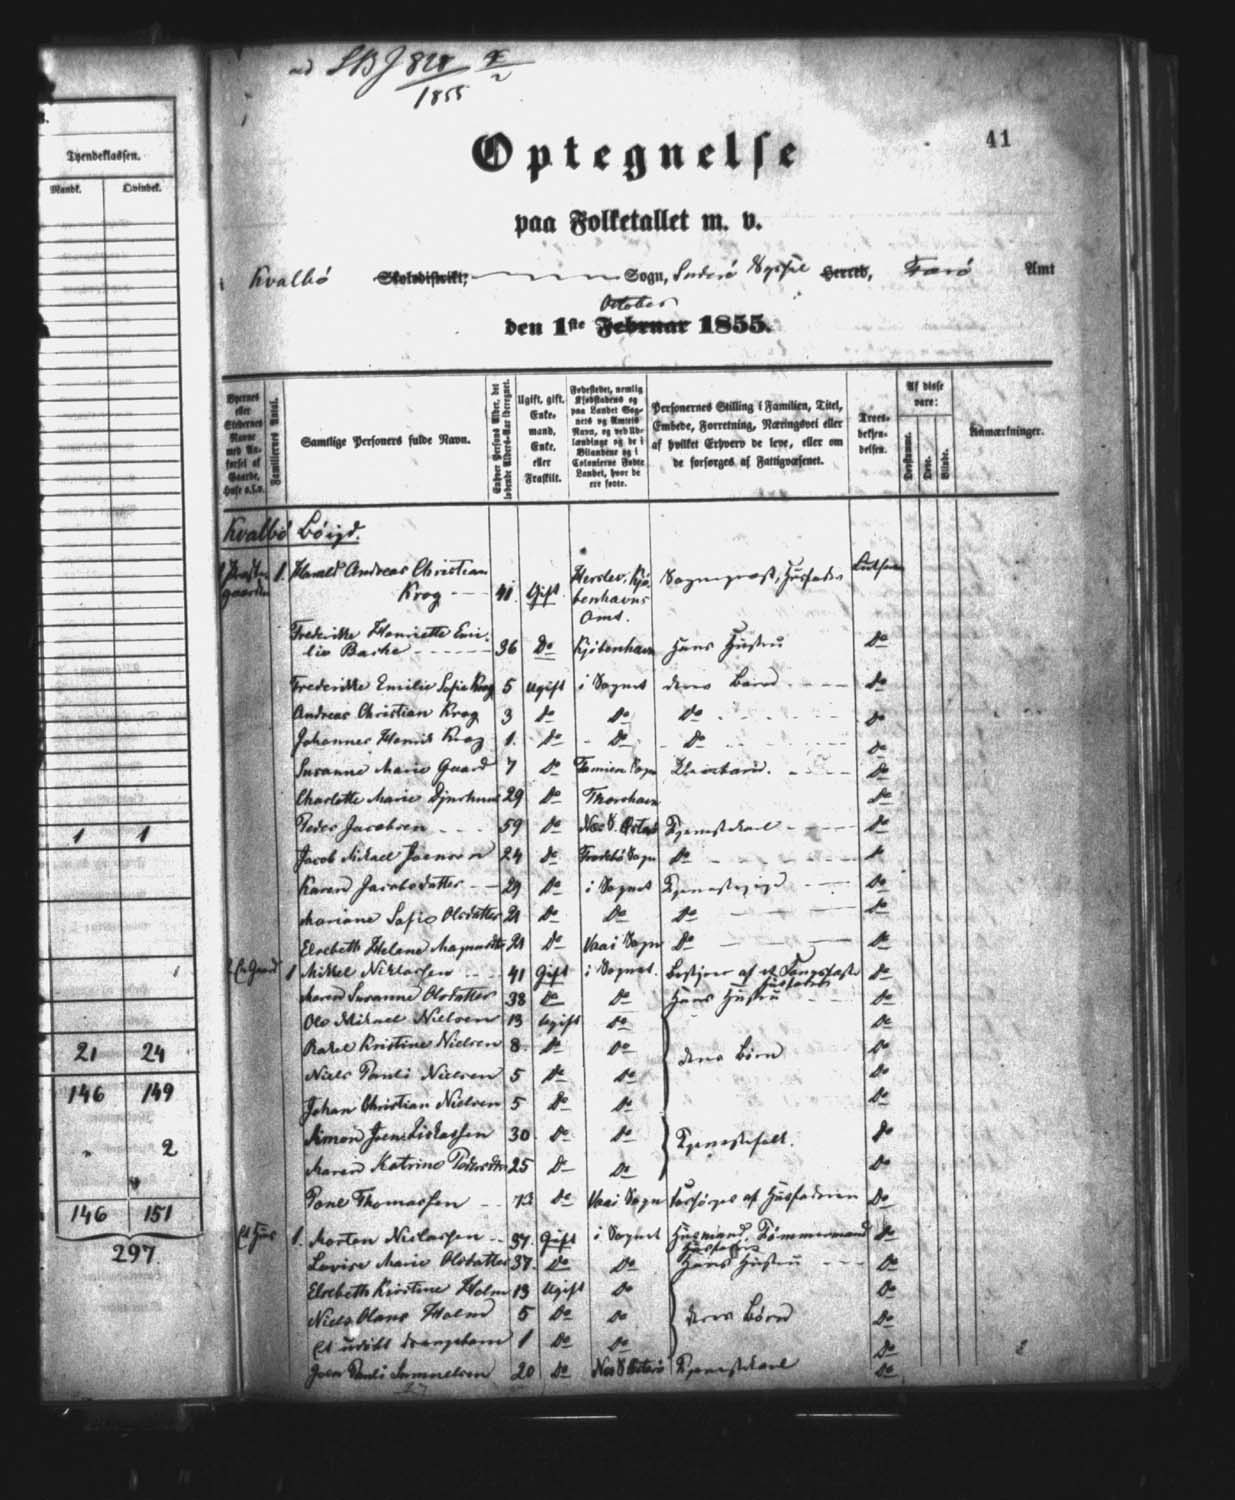 Tyendeklassen.
Mandk. Qvindek.
1 1
21 24
146 149
" 2
146 151
297.
SBJ 820
1855
41
Optegnelse
paa Folketallet m. v.
Kvalbö Skoledistrikt, Sogn, Suderö Syssel Herred, Færö Amt
October
den 1ste Februar 1855.
Byernes eller Stedernes Navne med Anførsel af Gaarde, Huse o.s.v.
Familiernes Antal.
Samtlige Personers fulde Navn.
Enhver Persons Alder, det løbende Alders-Aar iberegnet.
Ugift, gift, Enkemand, Enke, eller Fraskilt.
Fødestedet, nemlig Kjøbstadens og paa Landet Sognets og Amtets Navn, og ved Udlændinge og de i Bilandene og i Colonierne Fødte Landet, hvor de ere fødte.
Personernes Stilling i Familien, Titel, Embede, Forretning, Næringsvei eller af hvilket Erhverv de leve, eller om de forsørges af Fattigvæsenet.
Troesbekjendelsen.
Af disse vare:
Døvstumme. Døve. Blinde.
Anmærkninger.
Kvalbö Böigd.
Præstegaarden 1. Harald Andreas Christian
Krog 41. Gift Herslev, Kjöbenhavns Amt. Sognepræst, Husfader
Frederikke Henriette Emilie
36 Do Kjöbenhavn Hans Hustru Do
Frederikke Emilie Sofie Krog 5 Ugift i Sognet deres Barn Do
Andreas Christian Krog 3 Do Do Do Do
Johannes Henrik Krog 1. Do Do Do Do
Susanne Marie Gaard 7 Do Sogn Do
Charlotte Marie 29 Do Thorshavn Do
Peder Jacobsen 59 Do Tjenestekarl Do
Jacob Mikael Joensen 24 Do Frodebö Sogn Do Do
Karen Jacobsdatter 29 Do i Sognet Tjenestepige Do
Mariane Sofie Olsdatter 21 Do Do Do Do
Elsebeth Helene Magnusdtr 21 Do Vaai Sogn Do Do
En Gaard 1 Mikkel Niklassen 41 Gift i Sognet. Bestyrer af et Kongsfæste Husfader Do
Maren Susanne Olsdatter 38 Do Do Hans Hustru Do
Ole Mikael Nielsen 13 Ugift Do Do
Rakel Kristine Nielsen 8 Do Do deres Börn Do
Niels Pauli Nielsen 5 Do Do Do
Johan Christian Nielsen 5 Do Do Do
Simon Joen 30 Do Do Tjenestefolk. Do
Maren Katrine Pedersdtr 25 Do Do Do
Poul Thomassen 73 Do Vaai Sogn forsörges af Husfaderen Do
Et Huus 1. Morten Niclassen 37. Gift i Sognet Husmand, Tömmermand Husfader Do
Lovise Marie Olsdatter 37. Do Do Hans Hustru Do
Elsebeth Kirstine Holm 13 Ugift Do Do
Niels Olaus Holm 5 Do Do deres Börn Do
Et udöbt Drengebarn 1 Do Do Do
Joen Pauli Samuelsen 20 Do Tjenestekarl Do